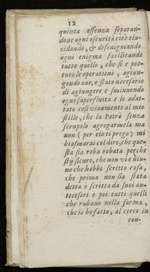 12
quinta essenza separan-
do ac ogni oscurità e io dilu-
cidando, & disegnando
ogni enigma facilitando
tutto quello, che si è potu-
to le operationi, agiun-
gendo cose, è stato necessario
di agiungere è sminuendo
ogni superfluita e io adat-
tato così vivamente al mio
stille, che ti Potrà senza
scrupolo agropriarmela ma
non (per eto ti prego) mi
biasimarai chi dire, che que-
sta sia roba robata perche
sij sicuro, che non vie niu-
no che habbi scritto cosa,
che prima non sia stata
detta o scritta da suoi an-
tecesori e poi tutti quelli
che rubano nella forma,
che io ho fatto, al certo in
con-